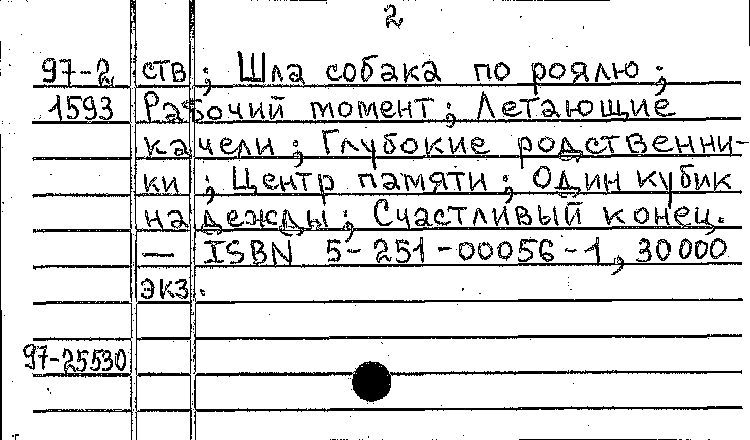 2
97-2 ств ; Шла собака по роялю ;
1593 Рабочий момент ; Летающие
качели ; Глубокие родственни-
ки ; Центр памяти ; Один кубик
надежды ; Счастливый конец.
— ISBN 5-251-00056-1, 30000
экз.
97-25530